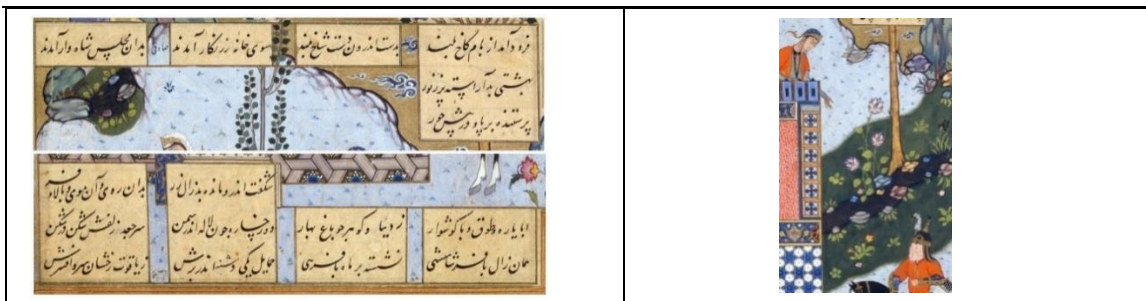 فرود آمد از بام کاخ بلند بدست اندرون دست شاخ بلند سوی خانه زرنگار آمدند بدان مجلس شاه وار آمدند
بهشتی بد آراسته پر ز نور
پرستنده بر پا و در پیش حور
شگفت اندرو مانده بد زال زر بدان روی و آن موی و بالا و فر
ابا یاره و طوق و با گوشوار ز دیبا و گوهر چو باغ بهار دو رخسار چون لاله اندر سمن سر جعد زلفش شکن بر شکن
همان زال با فر شاهنشهی نشسته بر ماه با فرهی حمایل یکی دشنه اندر برش ز یاقوت رخشان سر و افسرش